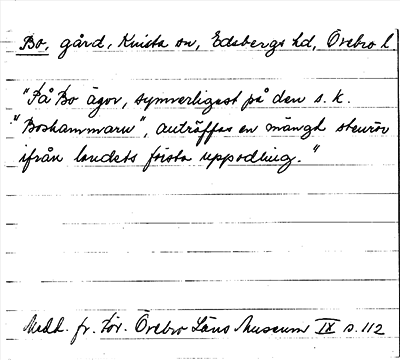 Bo, gård, Knista sn, Edsbergs hd, Örebro l.
"På Bo ägor, synnerligast på den s.k.
"Boshammarn", anträffas en mängd stenrör
ifrån landets första uppodling."
Medd. fr. För. Örebro Läns Museum IX s. 112